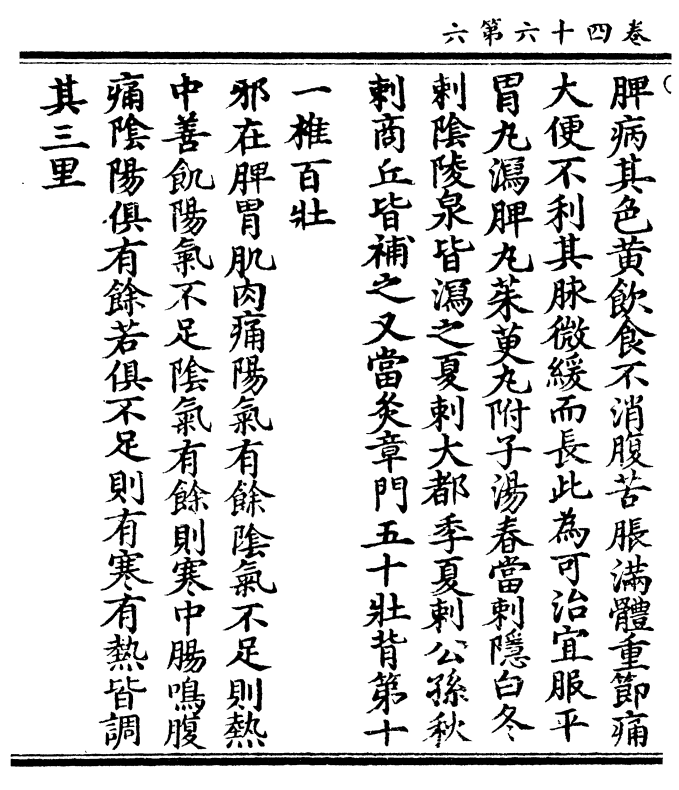 卷四十六第六
脾病其色黄飲食不消腹苦脹滿體重節痛
大便不利其脉微緩而長此為可治宜服平
胃丸瀉脾丸茱萸丸附子湯春當刺隱白冬
刺陰陵泉皆瀉之夏刺大都季夏刺公孫秋
刺商丘皆補之又當灸章門五十壯背第十
一椎百壯
邪在脾胃肌肉痛陽氣有餘陰氣不足則熱
中善飢陽氣不足陰氣有餘則寒中腸鳴腹
痛陰陽俱有餘若俱不足則有寒有熱皆調
其三里